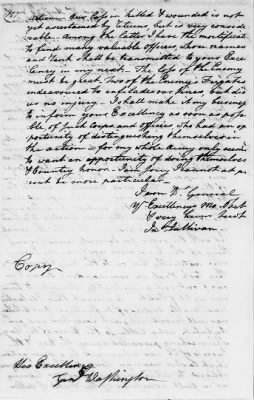 Our Loss in killed & wounded is not
yet ascertained by returns but is very conside-
rable. Among the latter I have the mortificatn
to find many valuable officers, whose names
and rank shall be transmitted to your Excel-
lency in my next. The Loss of the Enemy
must be great. two of the Enemy's Frigates
endeavoured to infilade our lines, but did
us no injury. I shall make it my business
to inform your Excellency as soon as possi-
ble of such Corps and officers who had an op-
portunity of distinguishing themselves in
the action — for my whole Army only seem'd
to want an opportunity of doing themselves
& Country honor. I am sorry I cannot at pre-
sent be more particular
I am D. General
Yr Excellencys Mo. Obet
& very hum Servt
Jno Sullivan.
Copy
His Excellency
Genl Washington